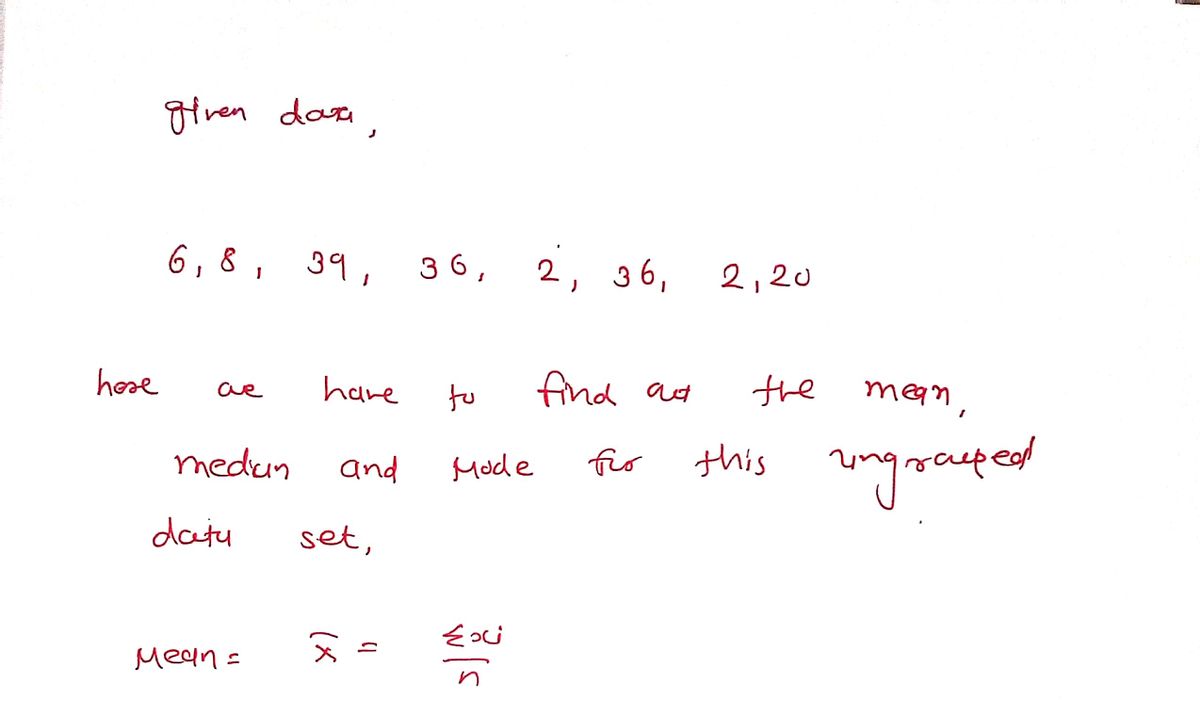 given data,
6, 8, 39, 36, 2, 36, 2, 20
here we have to find out the mean,
median and Mode for this ungrouped
data set,
Mean = x̅ = Σxi/n